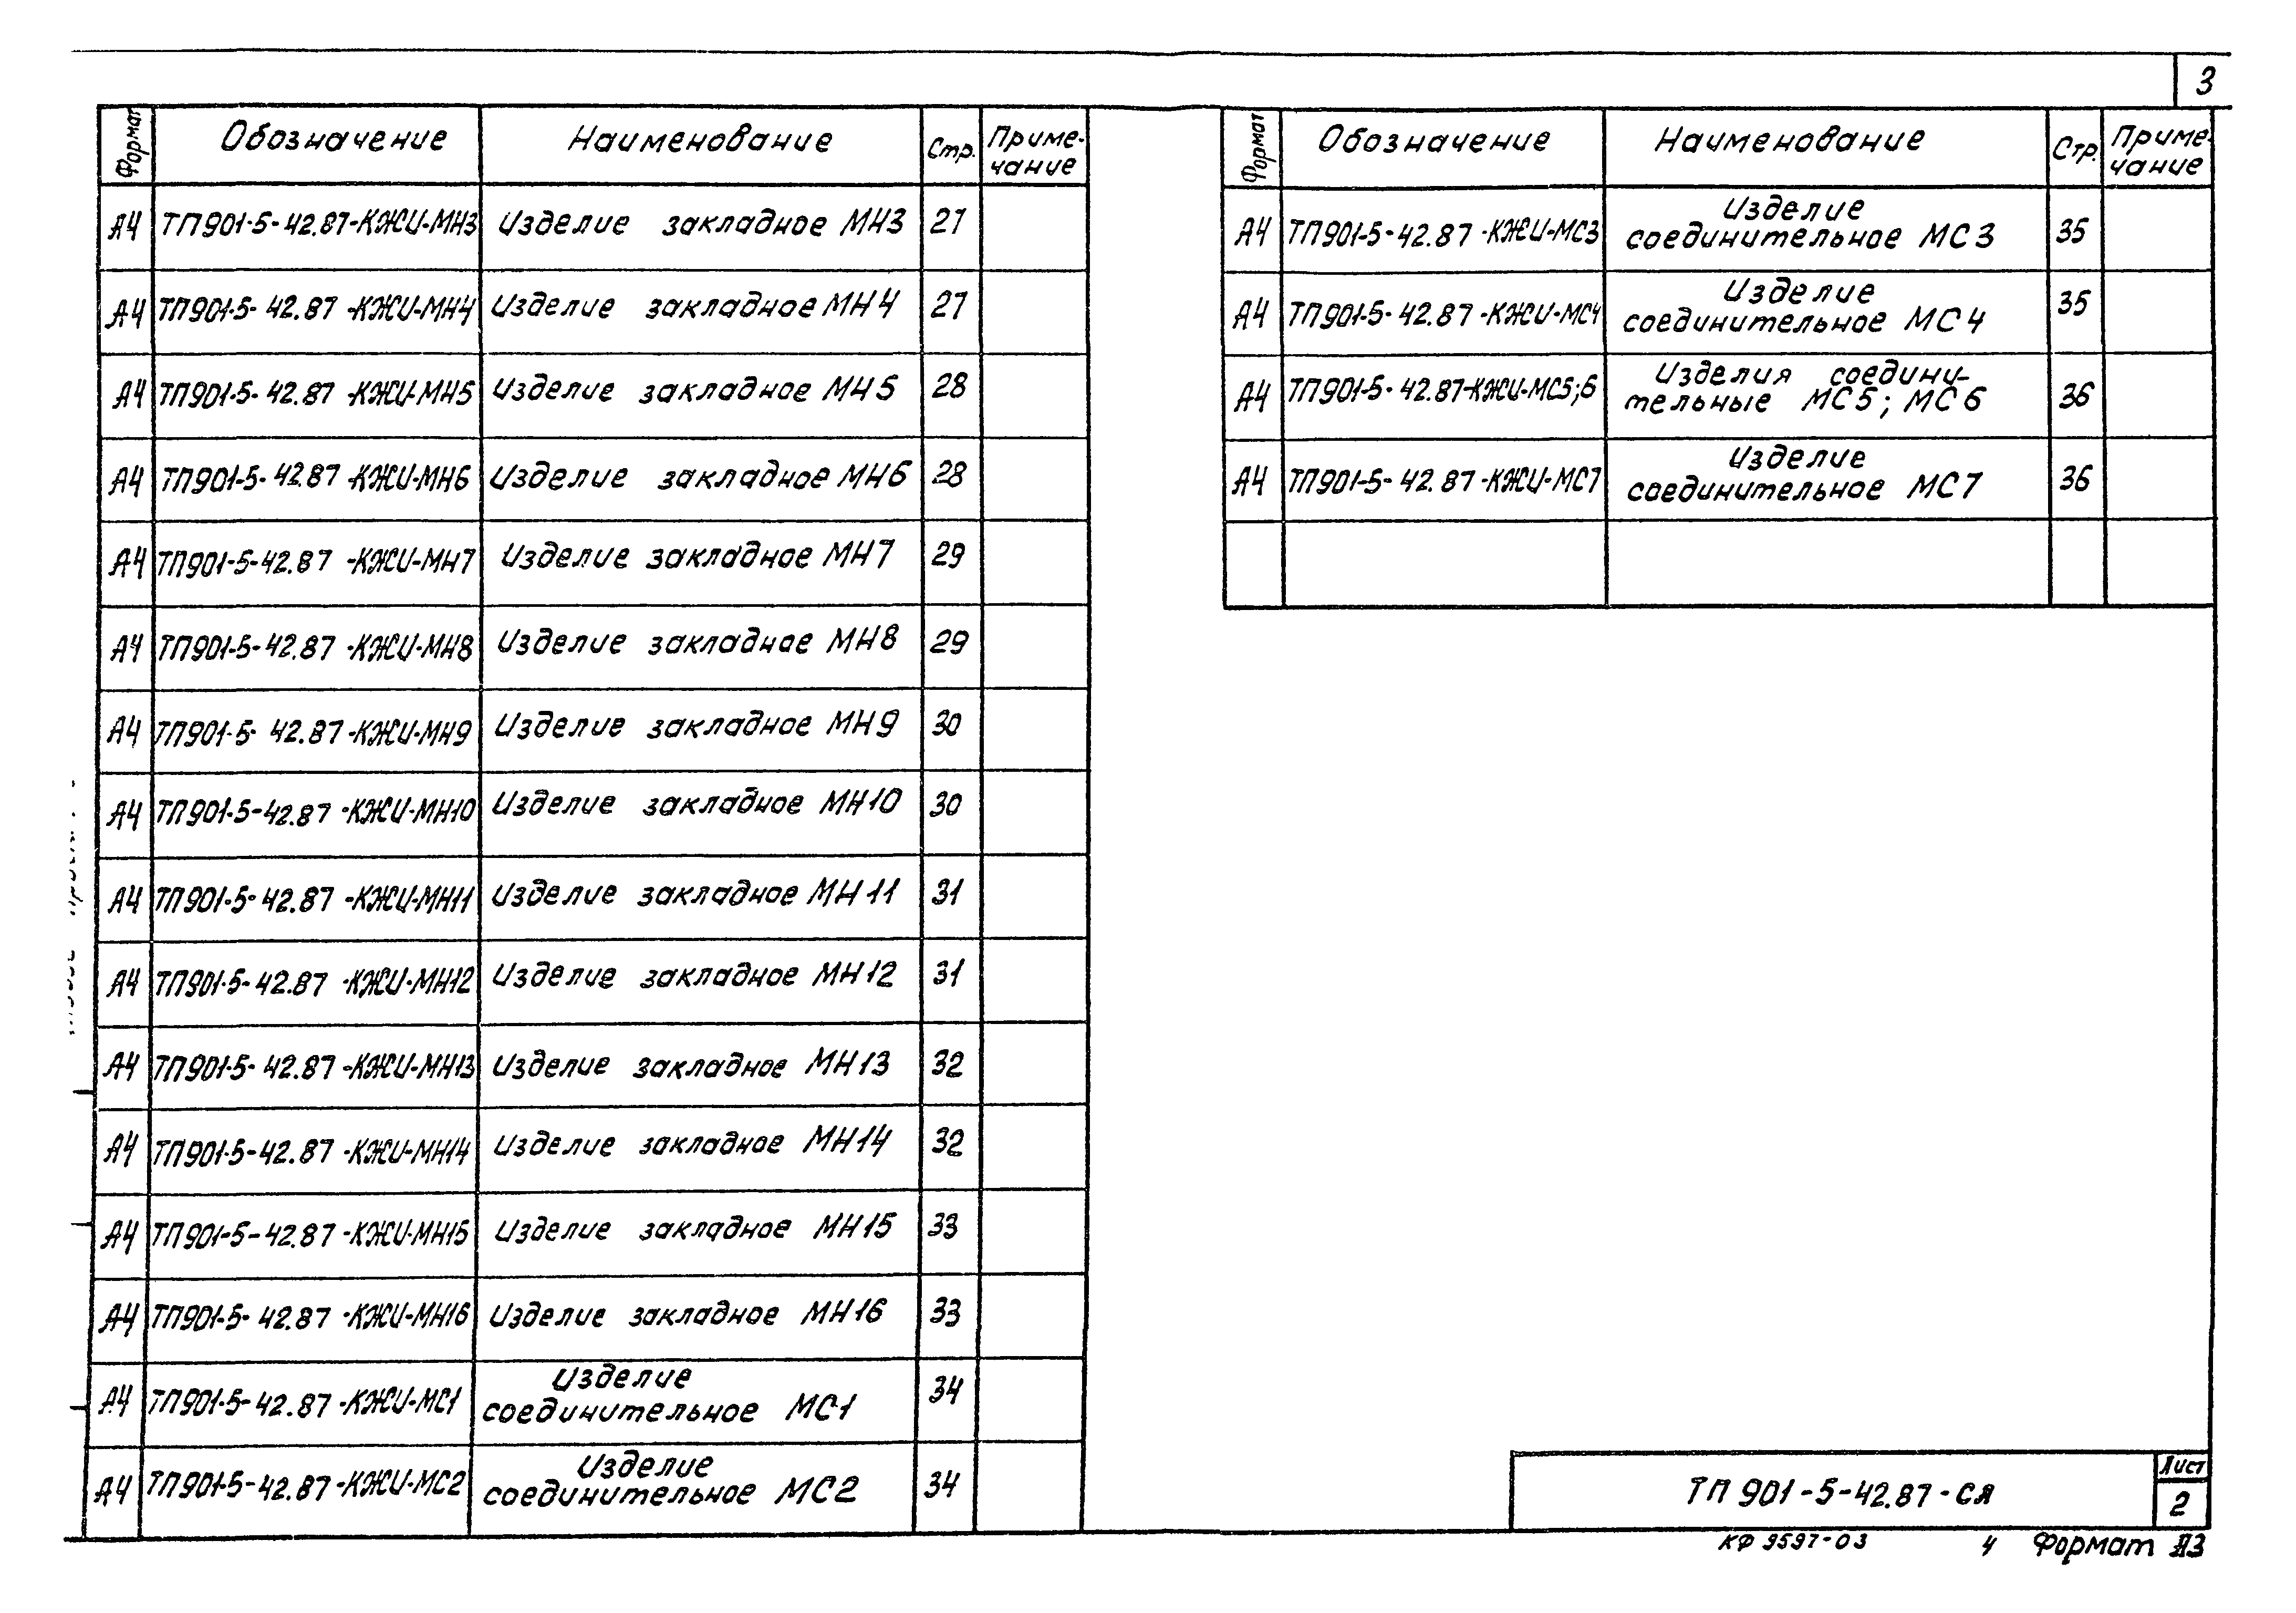 3
Формат Обозначение Наименование Стр. Приме-
чание
А4 ТП901-5-42.87-КЖИ-МН3 Изделие закладное МН3 27
А4 ТП901-5-42.87-КЖИ-МН4 Изделие закладное МН4 27
А4 ТП901-5-42.87-КЖИ-МН5 Изделие закладное МН5 28
А4 ТП901-5-42.87-КЖИ-МН6 Изделие закладное МН6 28
А4 ТП901-5-42.87-КЖИ-МН7 Изделие закладное МН7 29
А4 ТП901-5-42.87-КЖИ-МН8 Изделие закладное МН8 29
А4 ТП901-5-42.87-КЖИ-МН9 Изделие закладное МН9 30
А4 ТП901-5-42.87-КЖИ-МН10 Изделие закладное МН10 30
А4 ТП901-5-42.87-КЖИ-МН11 Изделие закладное МН11 31
А4 ТП901-5-42.87-КЖИ-МН12 Изделие закладное МН12 31
А4 ТП901-5-42.87-КЖИ-МН13 Изделие закладное МН13 32
А4 ТП901-5-42.87-КЖИ-МН14 Изделие закладное МН14 32
А4 ТП901-5-42.87-КЖИ-МН15 Изделие закладное МН15 33
А4 ТП901-5-42.87-КЖИ-МН16 Изделие закладное МН16 33
Изделие
А4 ТП901-5-42.87-КЖИ-МС1 соединительное МС1 34
Изделие
А4 ТП901-5-42.87-КЖИ-МС2 соединительное МС2 34
Формат Обозначение Наименование Стр. Приме-
чание
Изделие
А4 ТП901-5-42.87-КЖИ-МС3 соединительное МС3 35
Изделие
А4 ТП901-5-42.87-КЖИ-МС4 соединительное МС4 35
Изделия соедини-
А4 ТП901-5-42.87-КЖИ-МС5;6 тельные МС5; МС6 36
Изделие
А4 ТП901-5-42.87-КЖИ-МС7 соединительное МС7 36
ТП 901-5-42.87-СЯ
Лист
2
КФ 9597-03 4 Формат А3